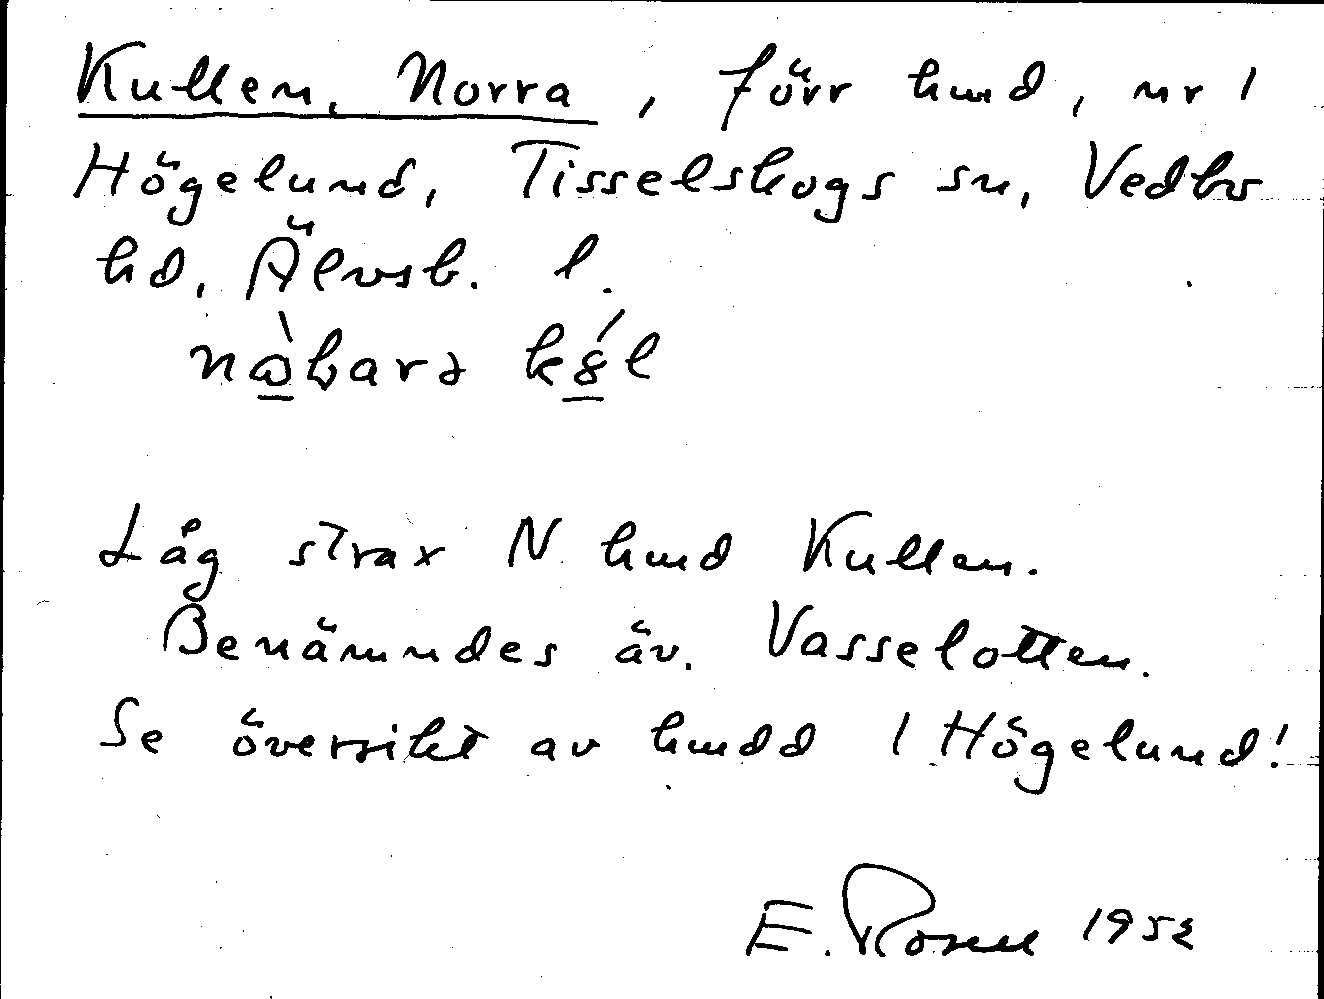 Kullen, Norra, förr hmd, nr 1
Högelund, Tisselskogs sn, Vedbo
hd, Älvsb. l.
Låg strax N hmd Kullen.
Benämndes äv. Vasselotten.
Se översikt av hmdd 1 Högelund!
E. Rosell 1952